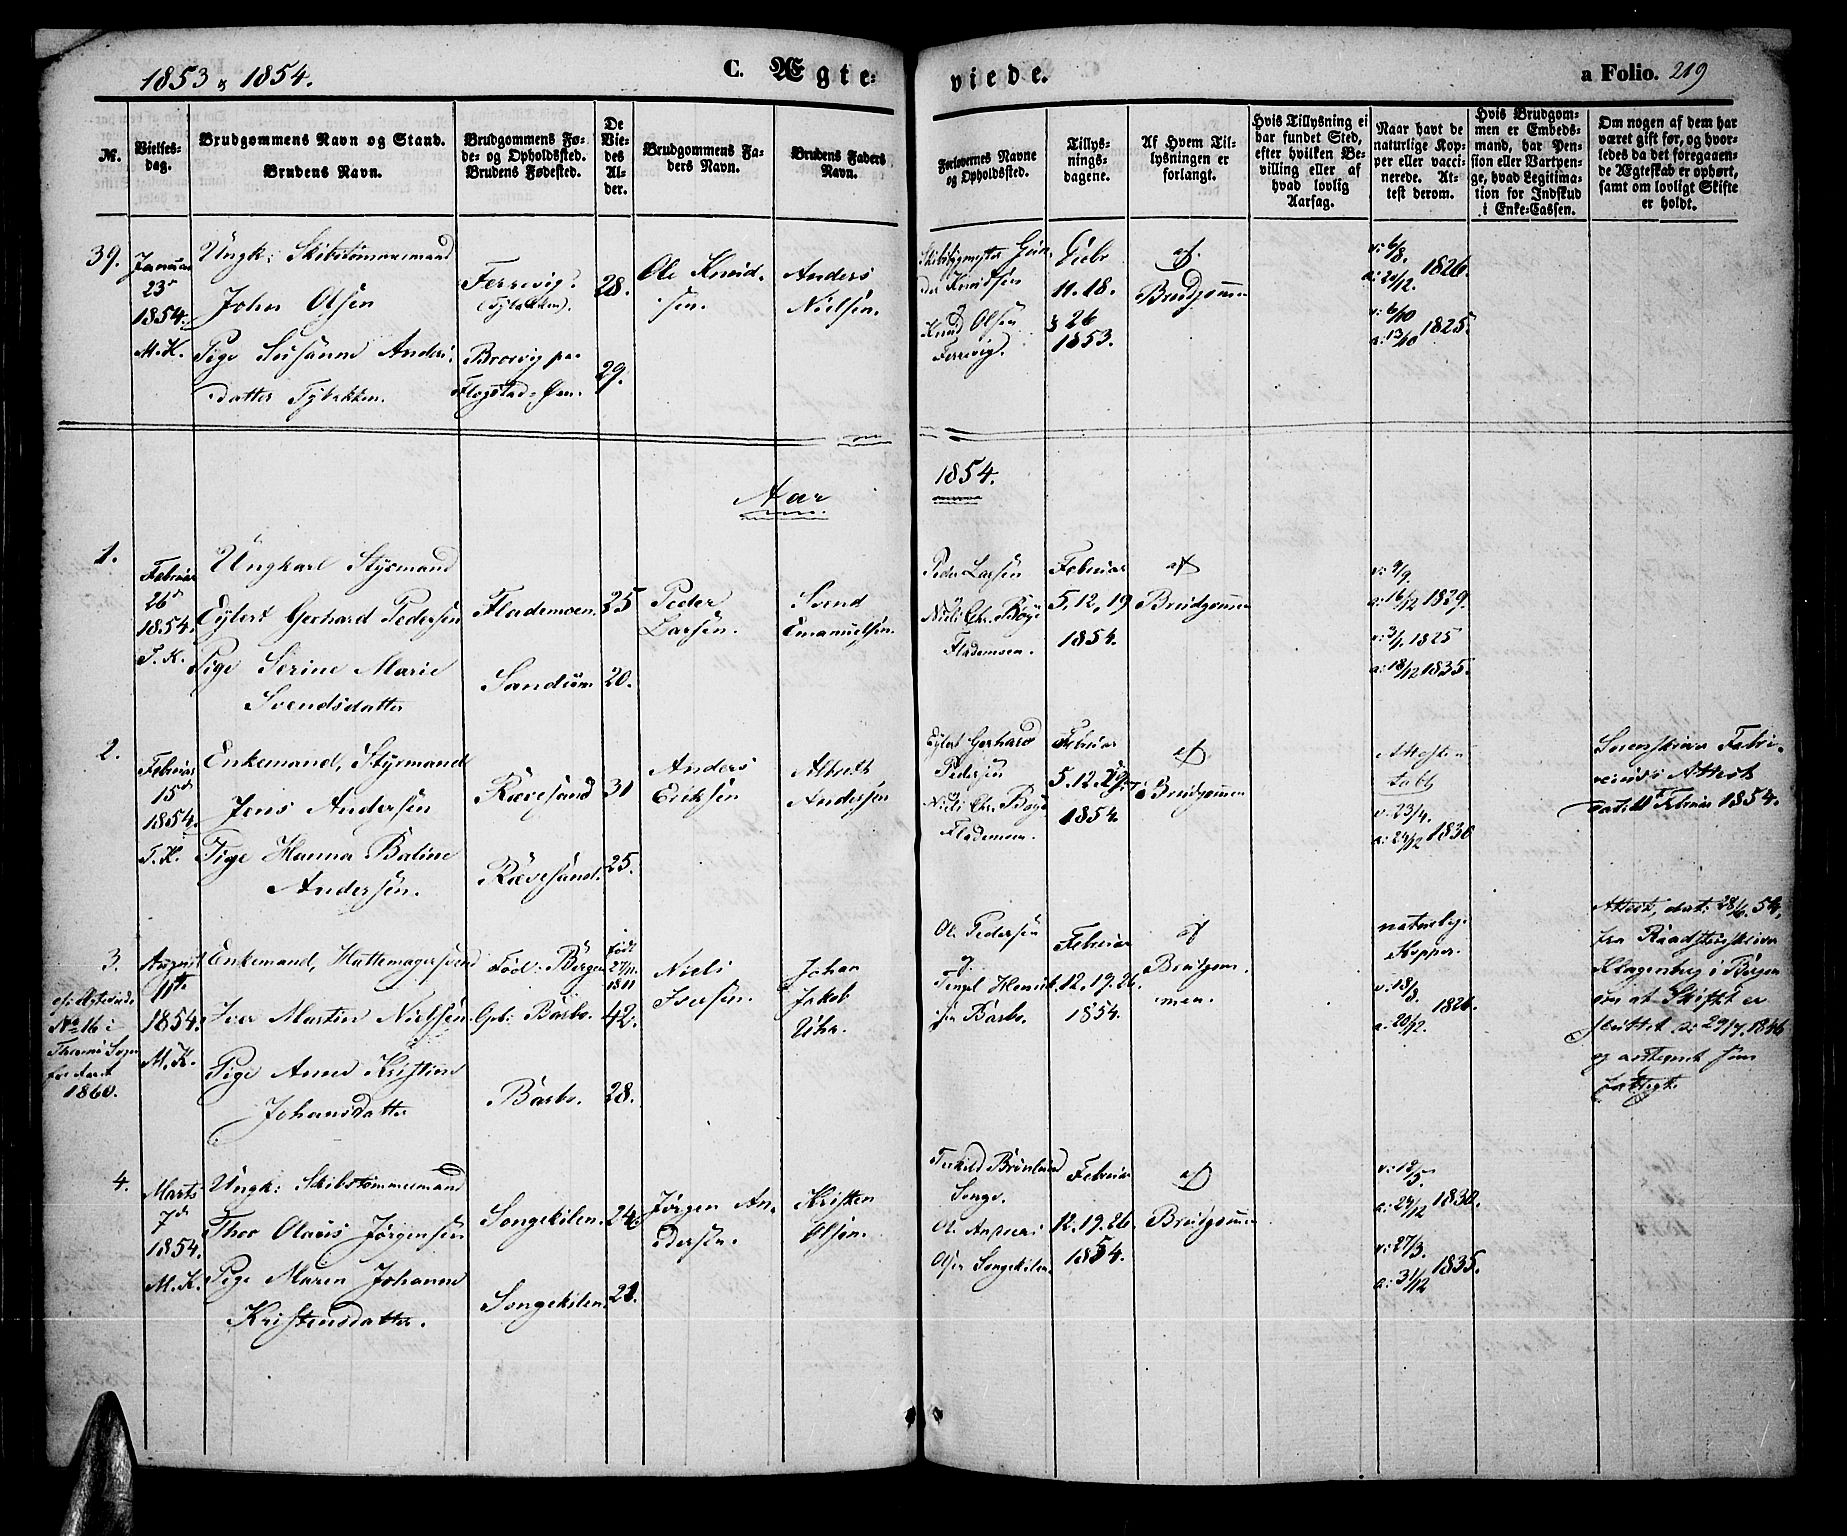 1853 & 1854.
C. Ægte=
viede.
a Folio. 219
№.
Vielses-
dag.
Brudgommens Navn og Stand.
Brudens Navn.
Brudgommens Fø-
de- og Opholdssted.
Brudens Fødested.
De
Vie-
des
Al-
der.
Brudgommens Fa-
ders Navn.
Brudens Faders
Navn.
Forlovernes Navne
og Opholdssted.
Tillys-
nings-
dagene.
Af Hvem Til-
lysningen er
forlangt.
Hvis Tillysning ei
har fundet Sted,
efter hvilken Be-
villing eller af
hvad lovlig
Aarsag.
Naar havt de
naturlige Kop-
per eller vacci-
nerede. At-
test derom.
Hvis Brudgom-
men er Embeds-
mand, har Pen-
sion eller Vartpen-
ge, hvad Legitima-
tion for Indskud
i Enke-Cassen.
Om nogen af dem har
været gift før, og hvor-
ledes da det foregaaen-
de Ægteskab er ophørt,
samt om lovligt Skifte
er holdt.
39.
Januar
23d
1854.
M.K.
Ungk: Skibstømmermand
John Olsen
Pige Susanne Anders-
datter Tybakken.
Ferrevig.
(Tybakken).
Brovig paa
Flagstad-Øen.
28.
29.
Ole Knud-
sen.
Anders
Nielsen.
Skibsbygmester Gun-
der Knudsen
&
Knud Olsen
Ferrevig.
Decbr
11. 18.
& 26
1853.
af
Brudgommen
v: 6/8.
a: 20/12. 1826.
v: 6/10
a: 13/10 1825.
Aar
1854.
1.
Februar
26d
1854.
T.K.
Ungkarl Styrmand
Eylert Gerhard Pedersen
Pige Serine Marie
Svendsdatter
Flademoen.
Sandum
25
20.
Peder
Larsen.
Svend
Emanuelsen.
Peder Larsen
&
Niels Chr. Bøye
Flademoen.
Februar
5, 12, 19
1854.
af
Brudgommen
v: 9/9.
a: 16/12 1839.
v: 3/9. 1825
a: 18/12 1835.
2.
Februar
15d
1854.
T.K.
Enkemand, Styrmand
Jens Andersen
Pige Hanna Boline
Andersen.
Rævesand
Rævesand.
31
25.
Anders
Eriksen
Albreth
Andersen
Eylert Gerhard
Pedersen
&
Niels Chr. Bøye
Flademoen.
Februar
5. 12. 19.
1854.
af
Brudgommen
Attesten
tabt
v: 23/4.
a: 24/12 1830
Sorenskriver Febri-
cius's Attest
dat: 11 Februar 1854.
3.
cfr Ægteviede
No 16 i
Thromø Sogn
for Aaret
1860.
August
11te
1854.
M.K.
Enkemand, Hattemagersvend
Iver Martin Nielsen
Pige Anne Kristine
Johansdatter
Fød: Bergen
Opb: Barbo.
Barbo.
født
27/11
1811
42.
28.
Niels
Iversen.
Johan
Jakob
Uhr.
Ole Pedersen
og
Tengel Henrik-
sen Barbo.
Februar
12. 19. 26.
1854.
af
Brudgom-
men.
naturlige
Kopper.
v: 18/3.
a: 20/12. 1826.
Attest, dat: 28/6. 54,
fra Raadstueskriver
Klagenberg i Bergen
om at Skiftet er
sluttet d: 29/7. 1846
og antegnet som
fattigt.
4.
Marts
7d
1854.
M.K.
Ungk: Skibstømmermand
Thor Olaus Jørgensen
Pige Maren Johanne
Kristensdatter.
Songekilen.
Songekilen.
24.
21.
Jørgen An-
dersen.
Kristen
Olsen.
Terkild Brunlund
Songe.
Ole Anders
Olsen Songekilen.
Februar
12. 19. 26
1854.
af
Brudgommen
v: 18/5.
a: 24/12 1830.
v: 27/3.
a: 31/12 1835.